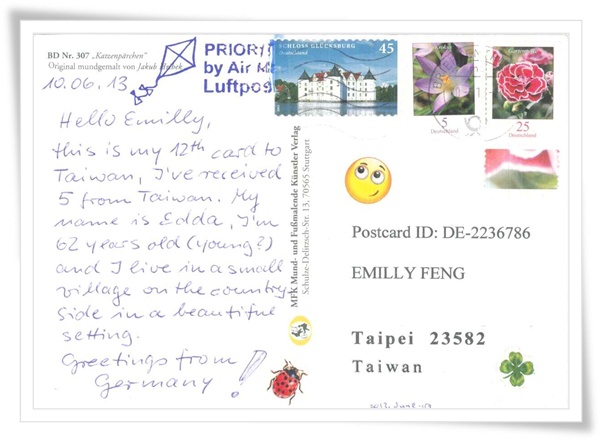 BD Nr. 307 „Katzenpärchen"
Original mundgemalt von Jakub
10.06.13
PRIORI
by Air M
Luftpos
SCHLOSS GLÜCKSBURG
Deutschland
45
Krokus
5
Deutschland
Gartennelke
25
Deutschland
Hello Emilly,
this is my 12th card to
Taiwan, I've received
5 from Taiwan. My
name is Edda, I'm
62 years old (young?)
and I live in a small
village on the country
side in a beautiful
setting.
Greetings from
Germany!
MFK Mund- und Fußmalende Künstler Verlag
Schulze-Delitzsch-Str. 13, 70565 Stuttgart
Postcard ID: DE-2236786
EMILLY FENG
Taipei 23582
Taiwan